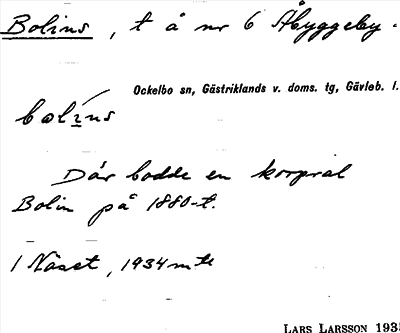 Bolins, t å nr 6 Åbyggeby.
Ockelbo sn, Gästriklands v. doms. tg, Gävleb. l.
bolíns
Där bodde en korpral
Bolin på 1880-t.
1 Näset, 1934 mte
LARS LARSSON 193